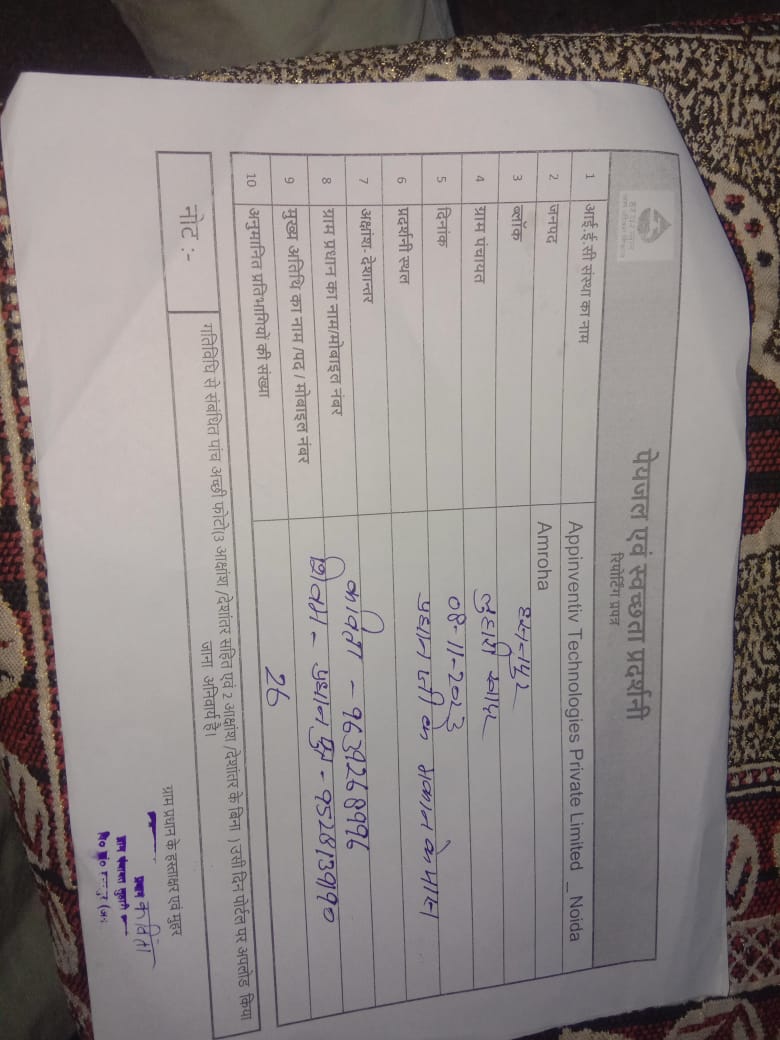 पेयजल एवं स्वच्छता प्रदर्शनी
रिपोर्टिंग प्रपत्र
1 आई.ई.सी संस्था का नाम Appinventiv Technologies Private Limited _ Noida
2 जनपद Amroha
3 ब्लॉक हसनपुर
4 ग्राम पंचायत
5 दिनांक 08-11-2023
6 प्रदर्शनी स्थल प्रधान जी के मकान के पास
7 अक्षांश- देशान्तर
8 ग्राम प्रधान का नाम/मोबाइल नंबर कविता - 9639268996
9 मुख्य अतिथि का नाम /पद / मोबाइल नंबर प्रधान पुत्र - 9528139190
10 अनुमानित प्रतिभागियों की संख्या 26
नोट :- गतिविधि से संबंधित पांच अच्छी फोटो(3 आक्षांश /देशांतर सहित एवं 2 आक्षांश /देशांतर के बिना ) उसी दिन पोर्टल पर अपलोड किया
जाना अनिवार्य है।
ग्राम प्रधान के हस्ताक्षर एवं मुहर
कविता